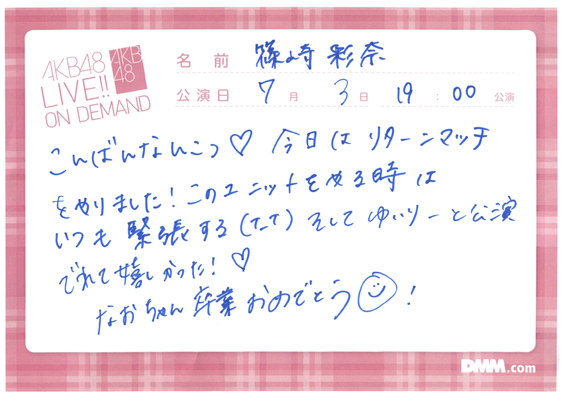 AKB48
LIVE!!
ON DEMAND
AKB
48
名前 篠崎彩奈
公演日 7月 3日 19:00 公演
こんばんなんこつ♡ 今日はリターンマッチ
をやりました!このユニットをやる時は
いつも緊張する(たて)そしてゆいりーと公演
でれて嬉しかった!♡
なおちゃん卒業おめでとう☺!
DMM.com